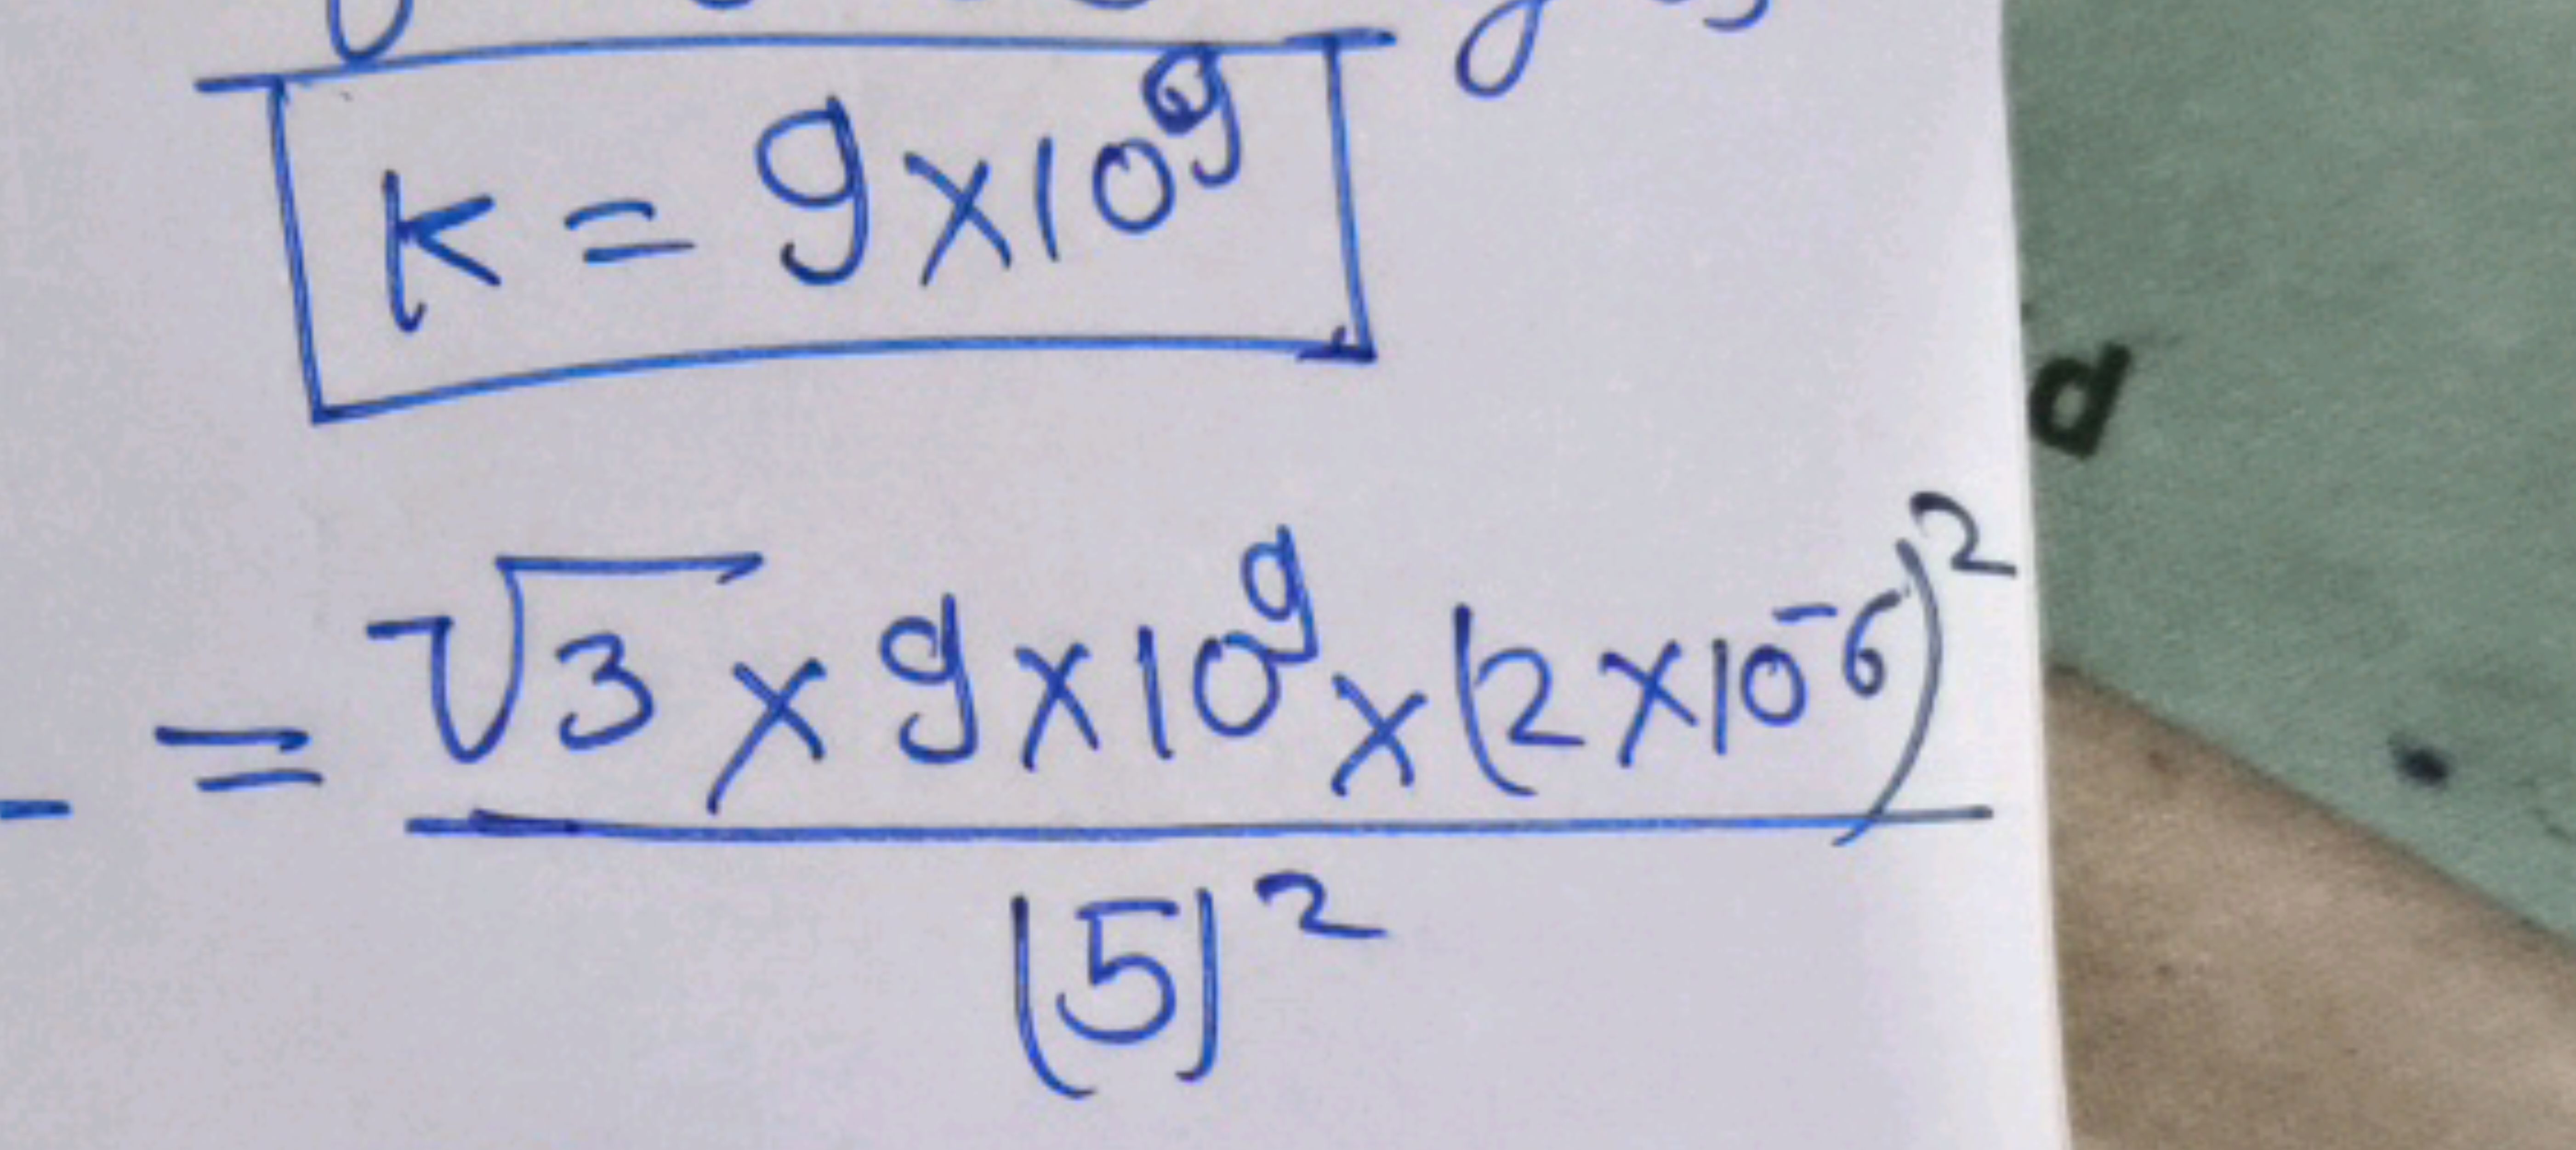 K = 9×10⁹
d
= √3 × 9×10⁹ × (2×10⁻⁶)²
(5)²